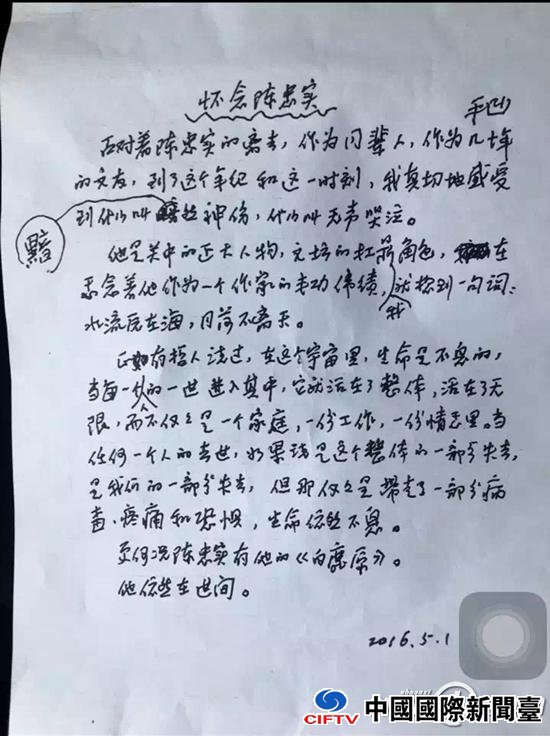 怀念陈忠实
平凹
面对着陈忠实的离去，作为同辈人，作为几十年
的文友，到了这个年纪和这一时刻，我真切地感受
到什么叫黯然神伤，什么叫无声哭泣。
他是关中的正大人物，文坛的扛鼎角色，在
思念着他作为一个作家的丰功伟绩，我想到一句词：
水流原在海，月落不离天。
正如有哲人说过，在这个宇宙里，生命是不息的，
当每一个人的一世进入其中，它就活在了整体，活在了无
限，而不仅仅是一个家庭，一份工作，一份情志里。当
任何一个人的去世，如果说是这个整体的一部分失去，
是我们的一部分失去，但那仅仅是带走了一部分病
毒、疼痛和恐惧，生命依然不息。
更何况陈忠实有他的《白鹿原》。
他依然在世间。
2016.5.1
CIFTV 中國國際新聞臺